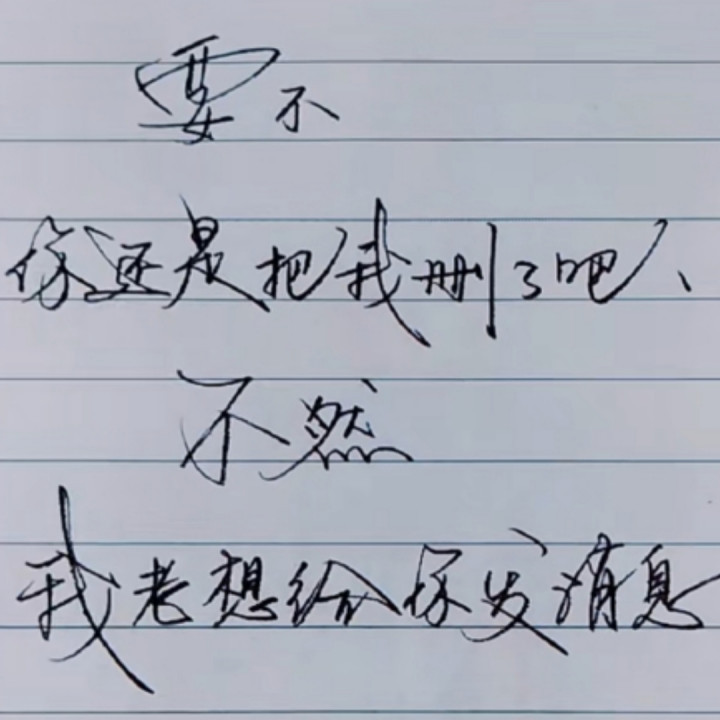 要不
你还是把我删了吧、
不然
我老想给你发消息